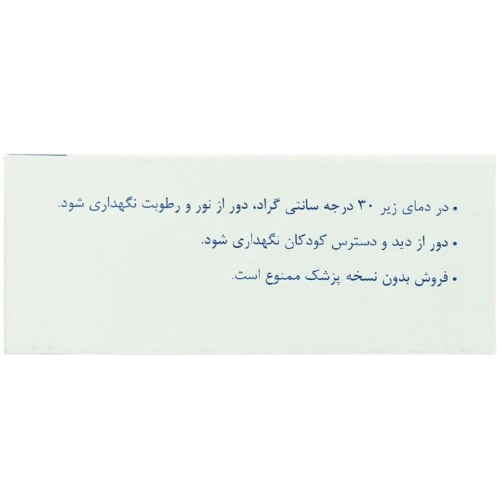 • در دمای زیر ۳۰ درجه سانتی گراد، دور از نور و رطوبت نگهداری شود.
• دور از دید و دسترس کودکان نگهداری شود.
• فروش بدون نسخه پزشک ممنوع است.